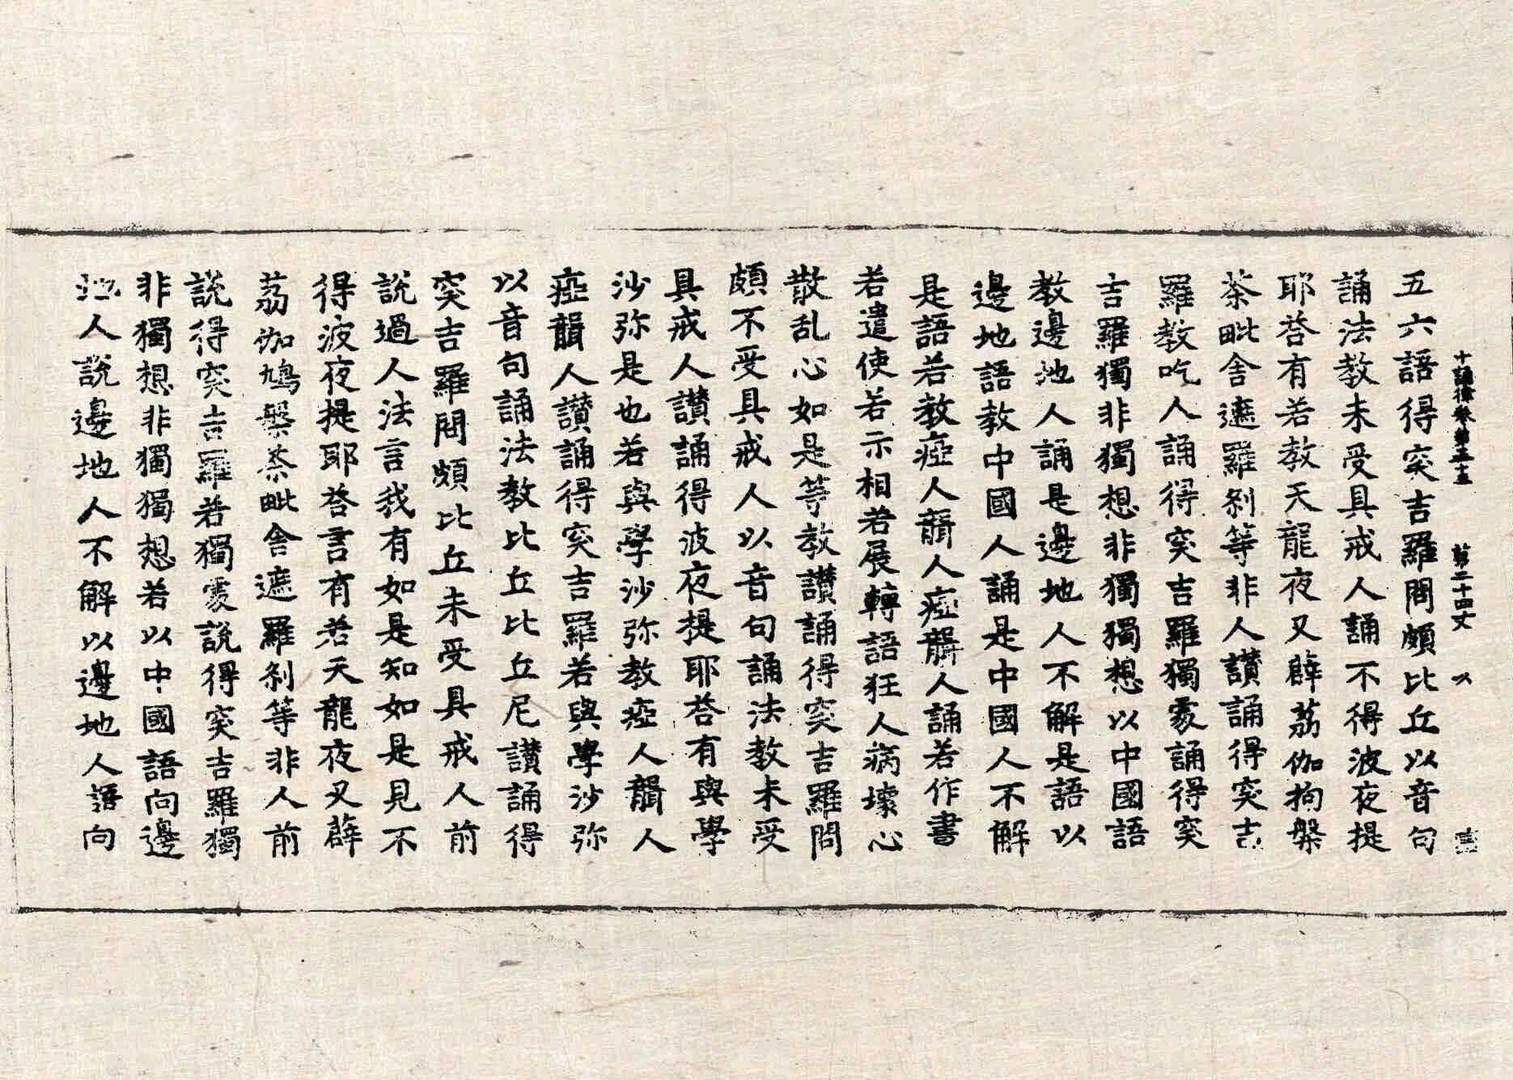 十誦律卷第五十五 第二十四丈 以
五六語得突吉羅問頗比丘以音句
誦法教未受具戒人誦不得波夜提
耶荅有若教天龍夜叉薜荔伽拘槃
荼毗舍遮羅刹等非人讃誦得突吉
羅教吃人誦得突吉羅獨處誦得突
吉羅獨非獨想非獨獨想以中國語
教邊地人誦是邊地人不解是語以
邊地語教中國人誦是中國人不解
是語若教瘂人聾人瘂聾人誦若作書
若遣使若示相若展轉語狂人病壞心
散乱心如是等教讃誦得突吉羅問
頗不受具戒人以音句誦法教未受
具戒人讃誦得波夜提耶荅有與學
沙弥是也若與學沙弥教瘂人聾人
瘂聾人讃誦得突吉羅若與學沙弥
以音句誦法教比丘比丘尼讃誦得
突吉羅問頗比丘未受具戒人前
說過人法言我有如是知如是見不
得波夜提耶荅言有若天龍夜叉薜
荔伽鳩槃荼毗舍遮羅刹等非人前
說得突吉羅若獨處說得突吉羅獨
非獨想非獨獨想若以中國語向邊
地人說邊地人不解以邊地人語向